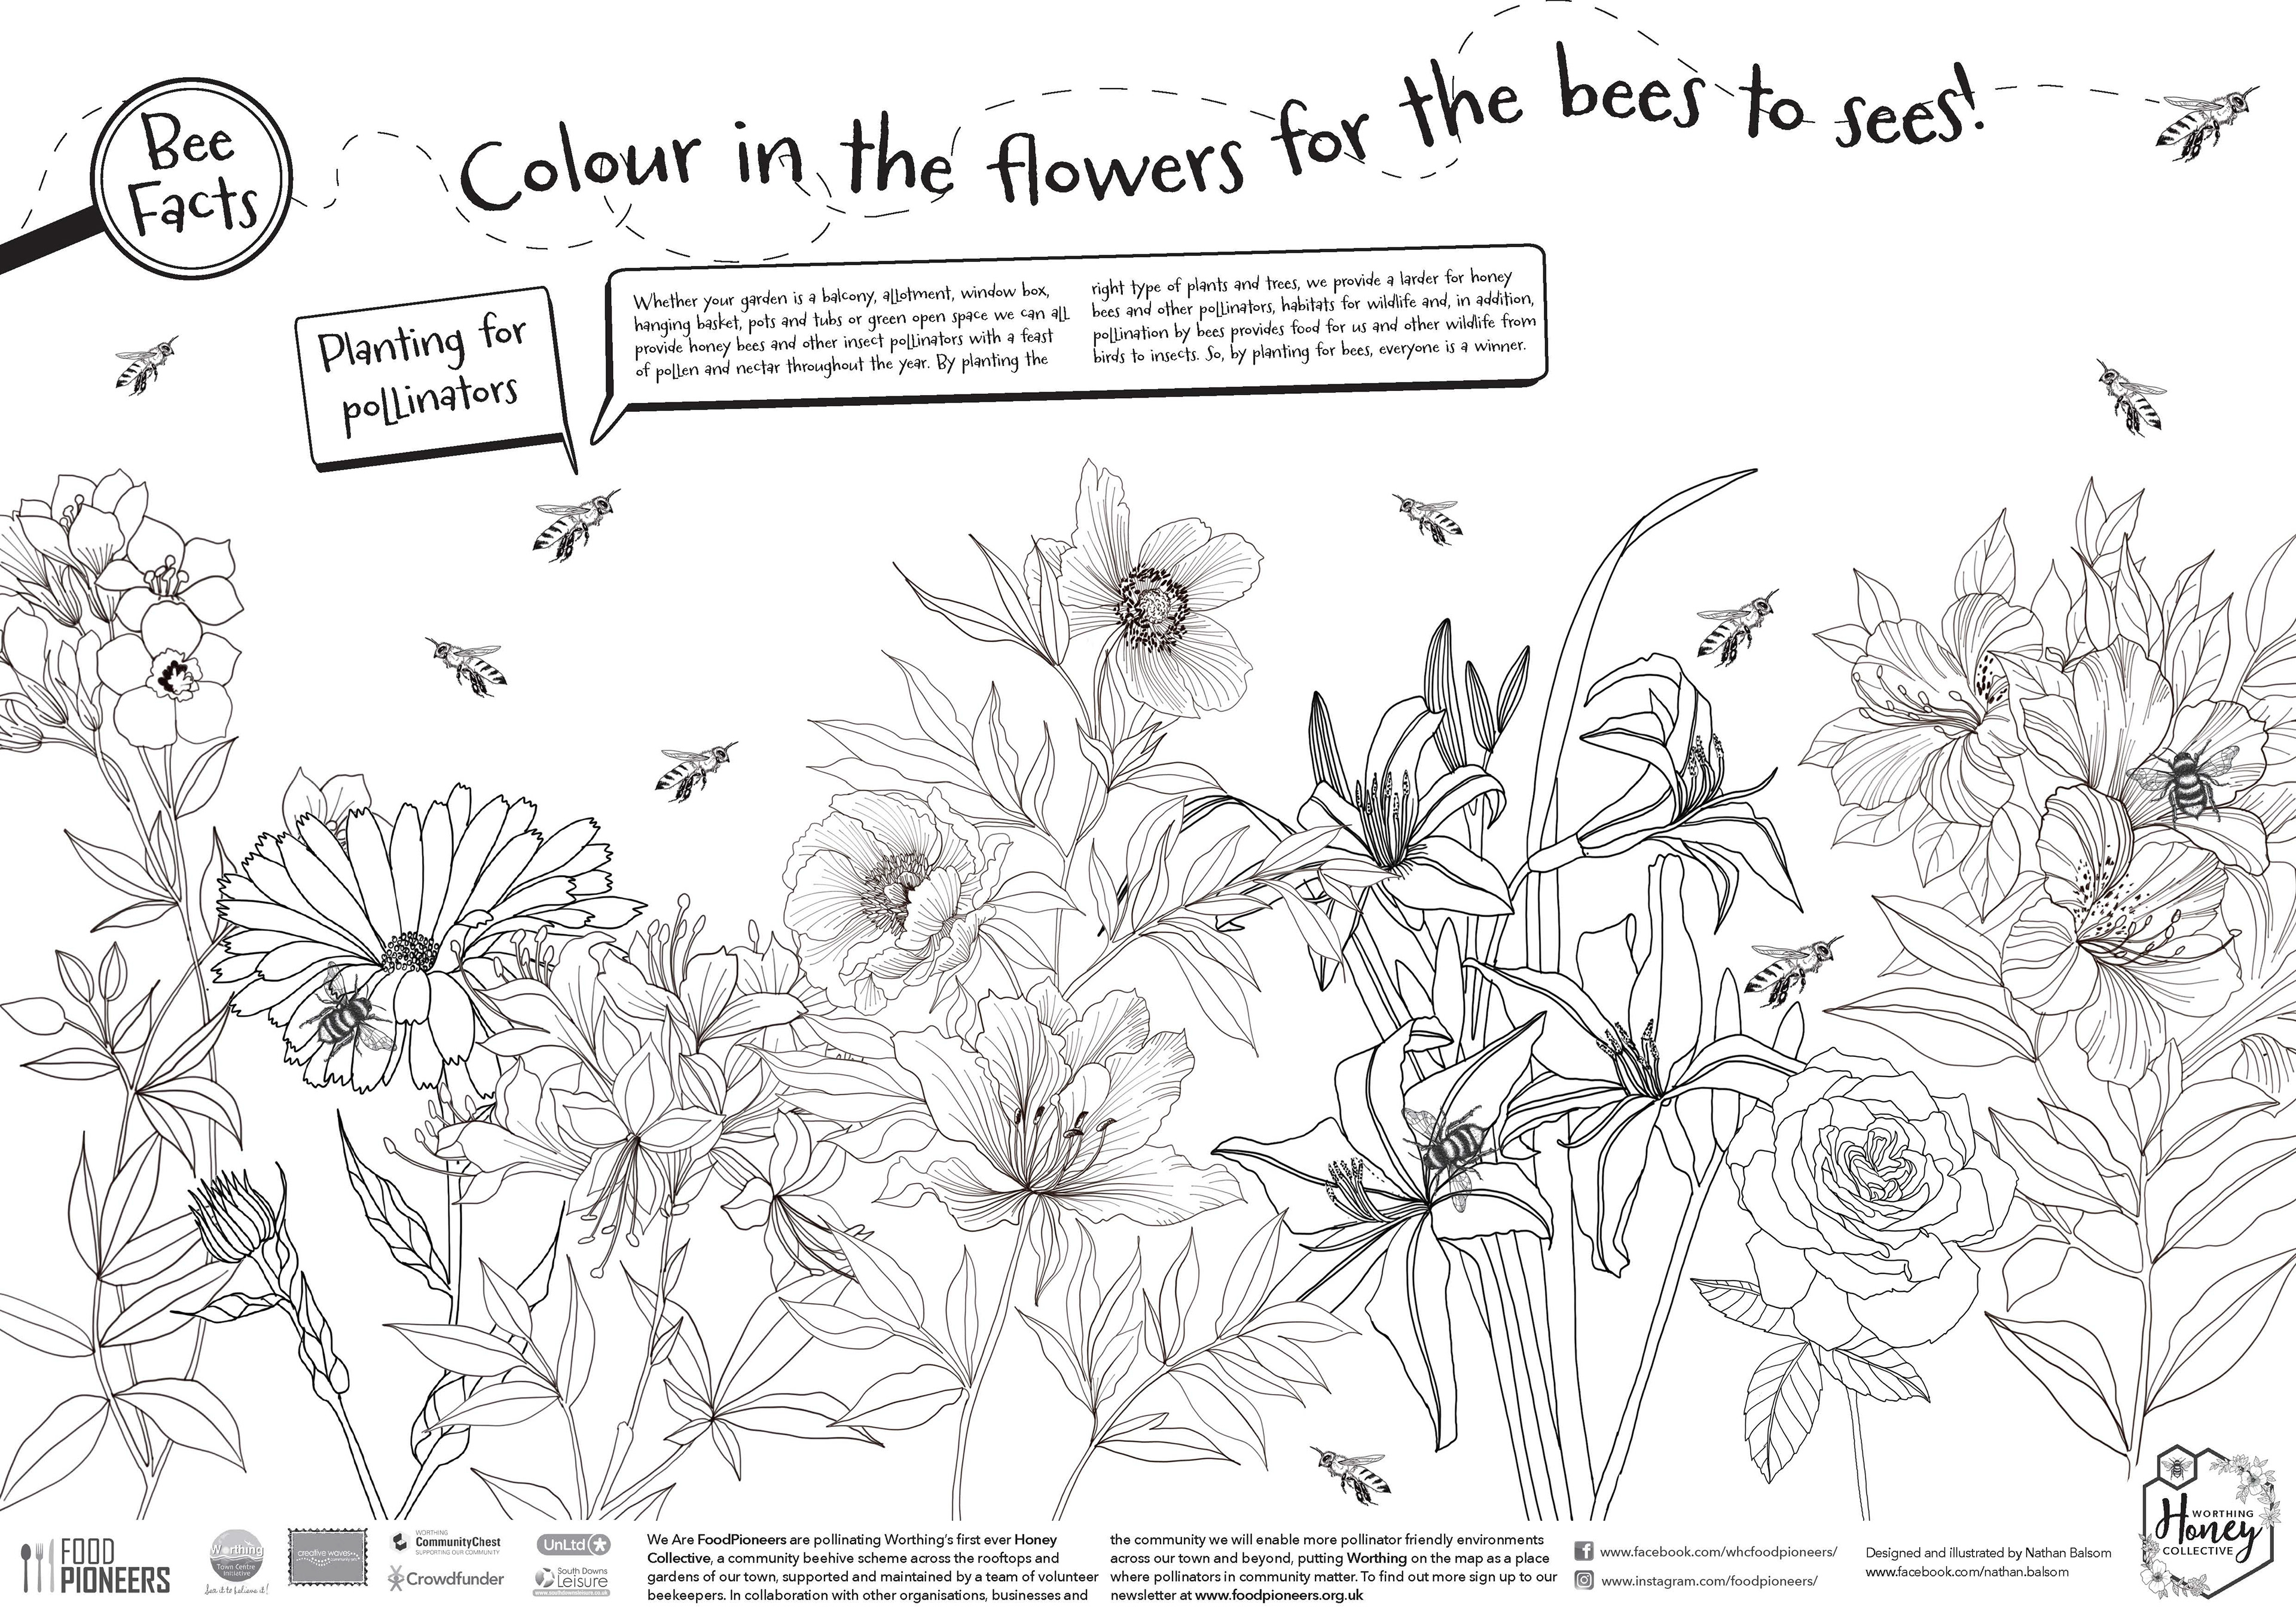 Bee
Facts
Colour in the flowers for the bees to sees!
Planting for
pollinators
Whether your garden is a balcony, allotment, window box,
hanging basket, pots and tubs or green open space we can all
provide honey bees and other insect pollinators with a feast
of pollen and nectar throughout the year. By planting the
right type of plants and trees, we provide a larder for honey
bees and other pollinators, habitats for wildlife and, in addition,
pollination by bees provides food for us and other wildlife from
birds to insects. So, by planting for bees, everyone is a winner.
FOOD
PIONEERS
Worthing
Town Centre
Initiative
See it to believe it!
creative waves
WORTHING
CommunityChest
SUPPORTING OUR COMMUNITY
Crowdfunder
UnLtd
South Downs
Leisure
www.southdownsleisure.co.uk
We Are FoodPioneers are pollinating Worthing's first ever Honey
Collective, a community beehive scheme across the rooftops and
gardens of our town, supported and maintained by a team of volunteer
beekeepers. In collaboration with other organisations, businesses and
the community we will enable more pollinator friendly environments
across our town and beyond, putting Worthing on the map as a place
where pollinators in community matter. To find out more sign up to our
newsletter at www.foodpioneers.org.uk
www.facebook.com/whcfoodpioneers/
www.instagram.com/foodpioneers/
Designed and illustrated by Nathan Balsom
www.facebook.com/nathan.balsom
WORTHING
Honey
COLLECTIVE